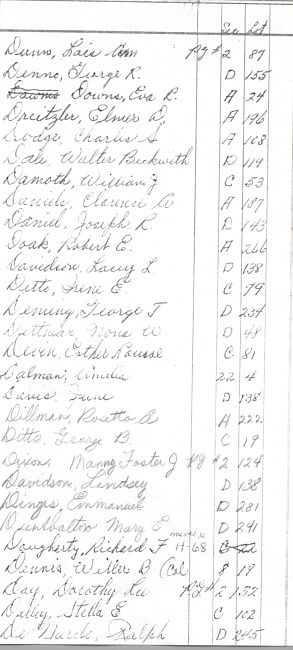 Sec Lot
Dunn, Lois Ann Pg # 2 87
Denno, George R. D 155
Downs, Eva R. A 24
Dreitzler, Elmer D, A 196
Dodge, Charles S A 108
Dale, Walter Beckwith D 119
Damoth, William J C 53
Daniels, Clarence A 187
Daniel, Joseph R. D 143
Doak, Robert E. A 266
Davidson, Lacey L. D 138
Ditto, Irene E. C 79
Deming, George T D 234
Dittmar, Mona W D 48
Deven, Esther C 81
Dalman, Amelia 22 4
Davis, June D 138
Dillman, Rosetta A A 222
Ditto, George B. C 19
Dixon, Manny Foster J Pg # 2 124
Davidson, Lindsey D 138
Dinges, Emmanuel D 281
Mary E D 241
Daugherty, Richard F moved to H-68
Dennis, Willer B (Col 8 19
Day, Dorothy Lee Pg # 2 132
Dilley, Stella E C 102
De Nardo, Ralph D 245